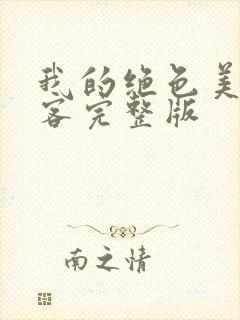 我的绝色美
客完整版
南之情